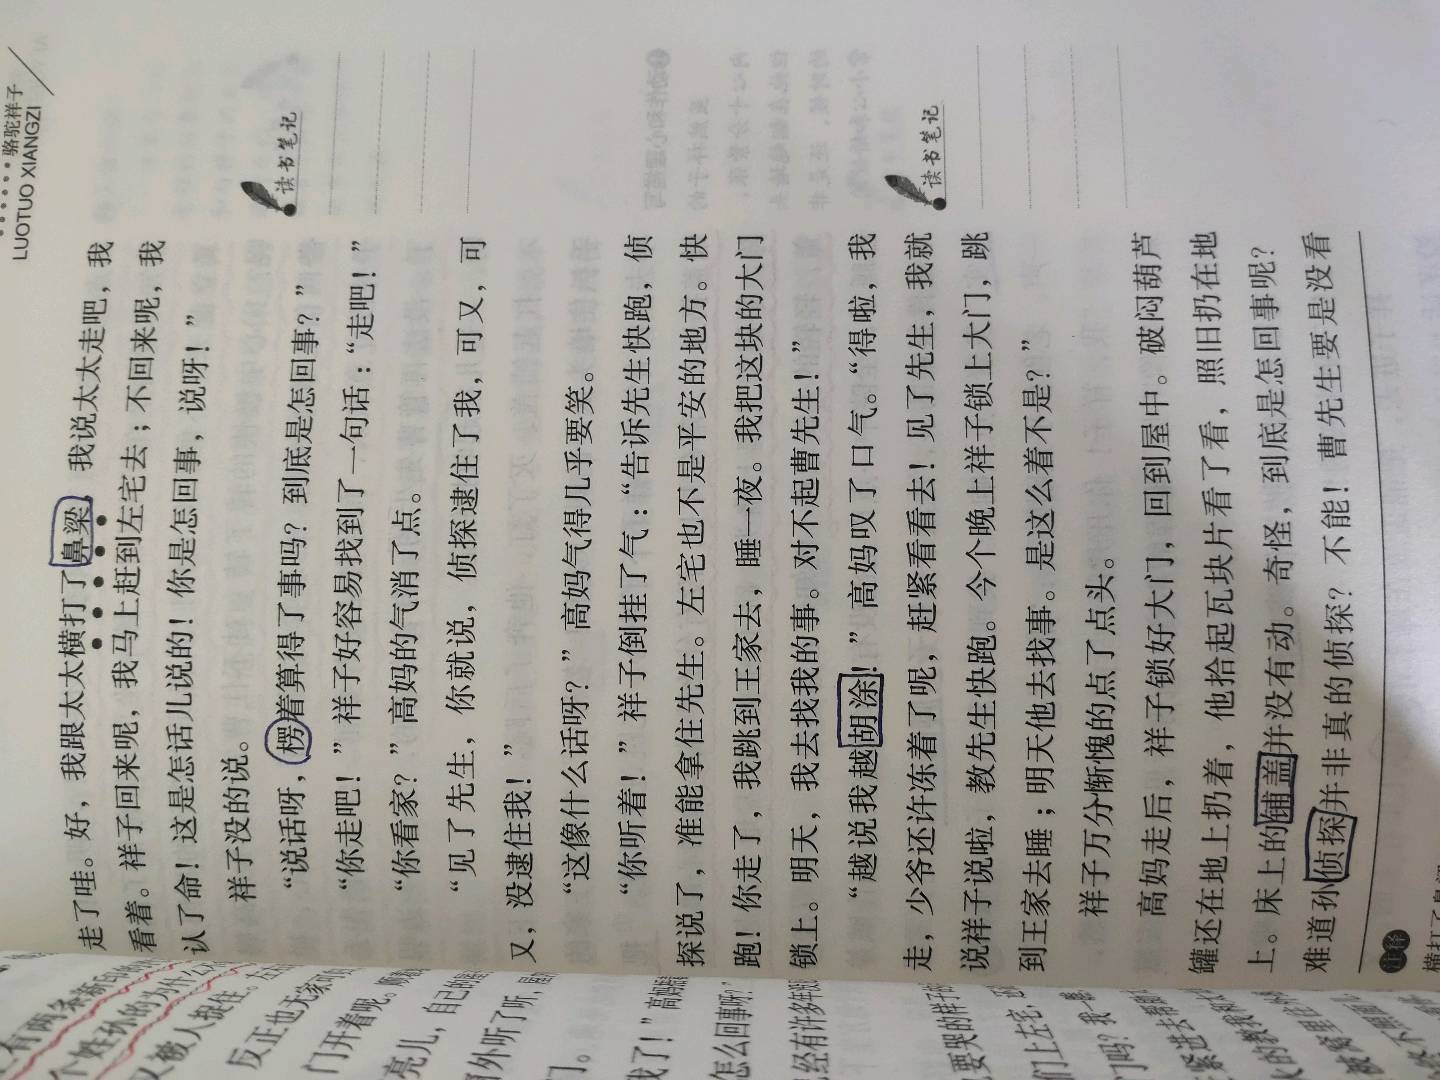 骆驼祥子
LUOTUO XIANGZI
走了哇。好，我跟太太横打了鼻梁，我说太太走吧，我
看着。祥子回来呢，我马上赶到左宅去；不回来呢，我
认了命！这是怎话儿说的！你是怎回事，说呀！”
祥子没的说。
“说话呀，楞着算得了事吗？到底是怎回事？”
“你走吧！”祥子好容易找到了一句话：“走吧！”
“你看家？”高妈的气消了点。
“见了先生，你就说，侦探逮住了我，可又，可
又，没逮住我！”
“这像什么话呀？”高妈气得几乎要笑。
“你听着！”祥子倒挂了气：“告诉先生快跑，侦
探说了，准能拿住先生。左宅也不是平安的地方。快
跑！你走了，我跳到王家去，睡一夜。我把这块的大门
锁上。明天，我去找我的事。对不起曹先生！”
“越说我越胡涂！”高妈叹了口气。“得啦，我
走，少爷还许冻着了呢，赶紧看看去！见了先生，我就
说祥子说啦，教先生快跑。今个晚上祥子锁上大门，跳
到王家去睡；明天他去找事。是这么着不是？”
祥子万分惭愧的点了点头。
高妈走后，祥子锁好大门，回到屋中。破闷葫芦
罐还在地上扔着，他拾起瓦块片看了看，照旧扔在地
上。床上的铺盖并没有动。奇怪，到底是怎回事呢？
难道孙侦探并非真的侦探？不能！曹先生要是没看
读书笔记
读书笔记
注释
反正也无家可
门开着呢。
亮儿，自己的
外听了听，
门。
我了！”高妈
怎么回事呀？”
已经有许多年
要哭的样子
们上左宅，
门吗？我